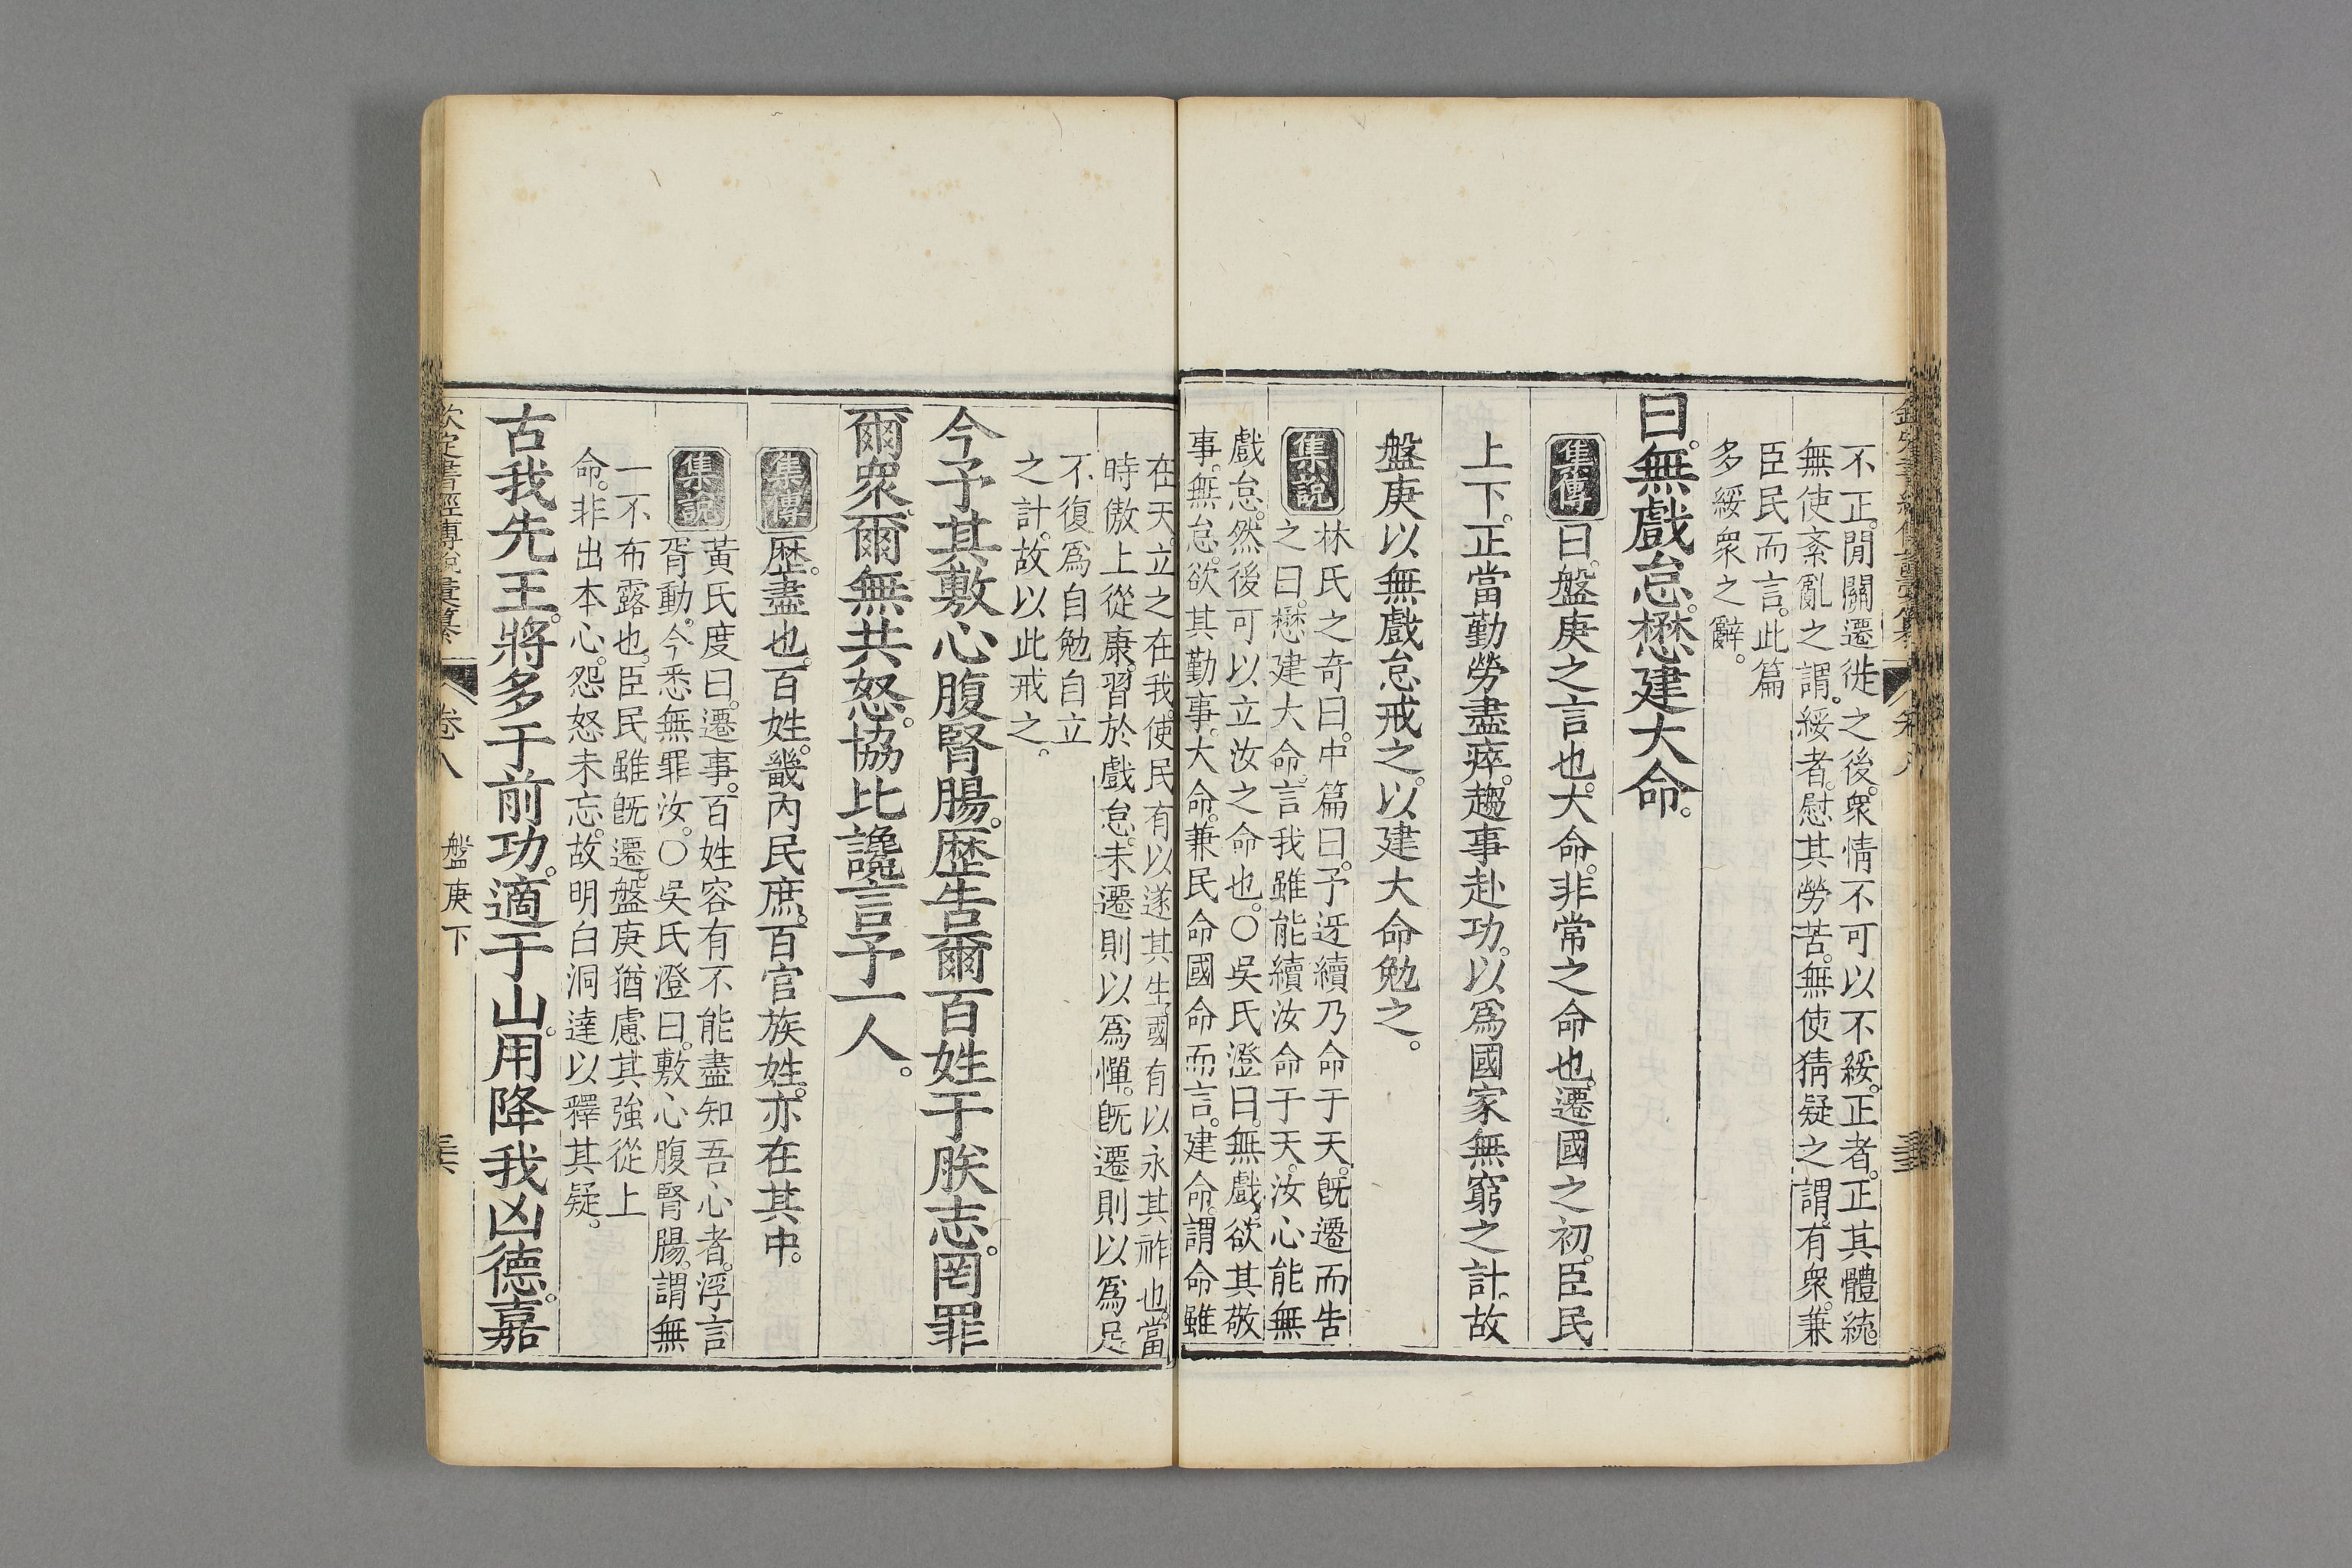 不正。閒關遷徙之後。衆情不可以不綏。正者。正其體統。
無使紊亂之謂。綏者。慰其勞苦。無使猜疑之謂。有衆。兼
臣民而言。此篇
多綏衆之辭。
曰。無戲怠。懋建大命。
集傳曰。盤庚之言也。大命。非常之命也。遷國之初。臣民
上下。正當勤勞盡瘁。趨事赴功。以爲國家無窮之計。故
盤庚以無戲怠戒之。以建大命勉之。
集說
林氏之奇曰。中篇曰。予迓續乃命于天。旣遷而告
之曰。懋建大命。言我雖能續汝命于天。汝心能無
戲怠。然後可以立汝之命也。○吳氏澄曰。無戲。欲其敬
事。無怠。欲其勤事。大命。兼民命國命而言。建命。謂命雖
在天。立之在我。使民有以遂其生。國有以永其祚也。當
時傲上從康。習於戲怠。未遷則以爲憚。旣遷則以爲足。
不復爲自勉自立
之計。故以此戒之。
今予其敷心腹腎腸。歷告爾百姓于朕志。罔罪
爾衆。爾無共怒。協比讒言予一人。
集傳歷。盡也。百姓。畿內民庶。百官族姓。亦在其中。
集說
黃氏度曰。遷事。百姓容有不能盡知吾心者。浮言
胥動。今悉無罪汝。○吳氏澄曰。敷心腹腎腸。謂無
一不布露也。臣民雖旣遷。盤庚猶慮其強從上
命。非出本心。怨怒未忘。故明白洞達以釋其疑。
古我先王。將多于前功。適于山。用降我凶德。嘉
欽定書經傳說彙纂 卷八 盤庚下